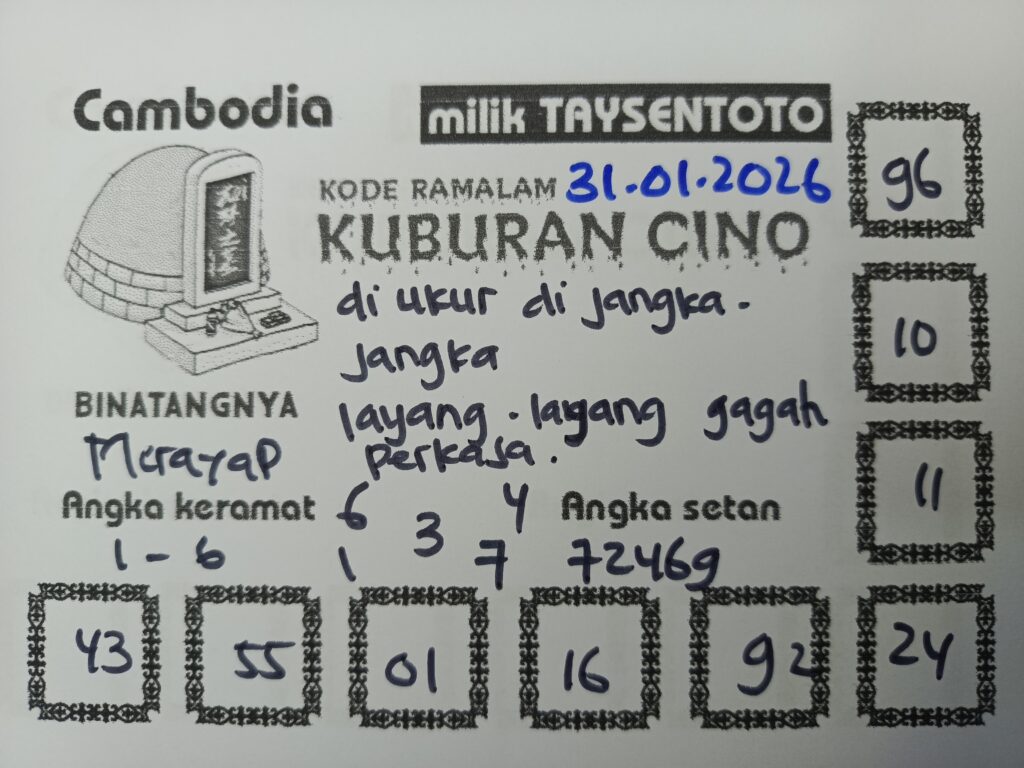 Cambodia
milik TAYSENTOTO
KODE RAMALAM 31.01.2026
KUBURAN CINO
di ukur di jangka-
jangka
layang-layang gagah
perkasa.
BINATANGNYA
Merayap
Angka keramat
1-6
6 4
3
1 7
Angka setan
72469
96
10
11
43 55 01 16 92 24